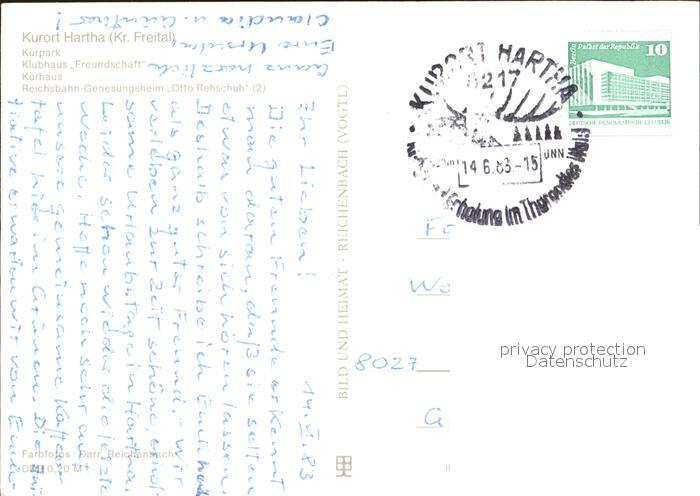 Kurort Hartha (Kr. Freital)
Kurpark
Klubhaus „Freundschaft"
Kurhaus
Reichsbahn-Genesungsheim „Otto Rehschuh" (2)
Farbfotos: Darr, Reichenbach
0,20 M
BILD UND HEIMAT · REICHENBACH (VOGTL)
14.VI.83
Ihr Lieben!
Die guten Freunde erkennt
man daran, daß sie selten
etwas von sich hören lassen.
Deshalb schreibe ich Euch
als ganz guter Freund. Wir
verleben zur Zeit schöne,
same Urlaubstage in Hartha.
Leider schon wieder die letzte
Woche. Hoffe noch sehr auf
unsere gemeinsame Kaffee-
tafel hier im Grünen. Die
tiative erwarten wir von Euch.
Ganz herzlich
Eure Ursula,
Claudia u. Günther!
KURORT HARTHA
8217
14.6.83.-15
Erholung im Tharandter Wald
Berlin Palast der Republik
10
DEUTSCHE DEMOKRATISCHE REPUBLIK
Wo
8027
G
privacy protection
Datenschutz